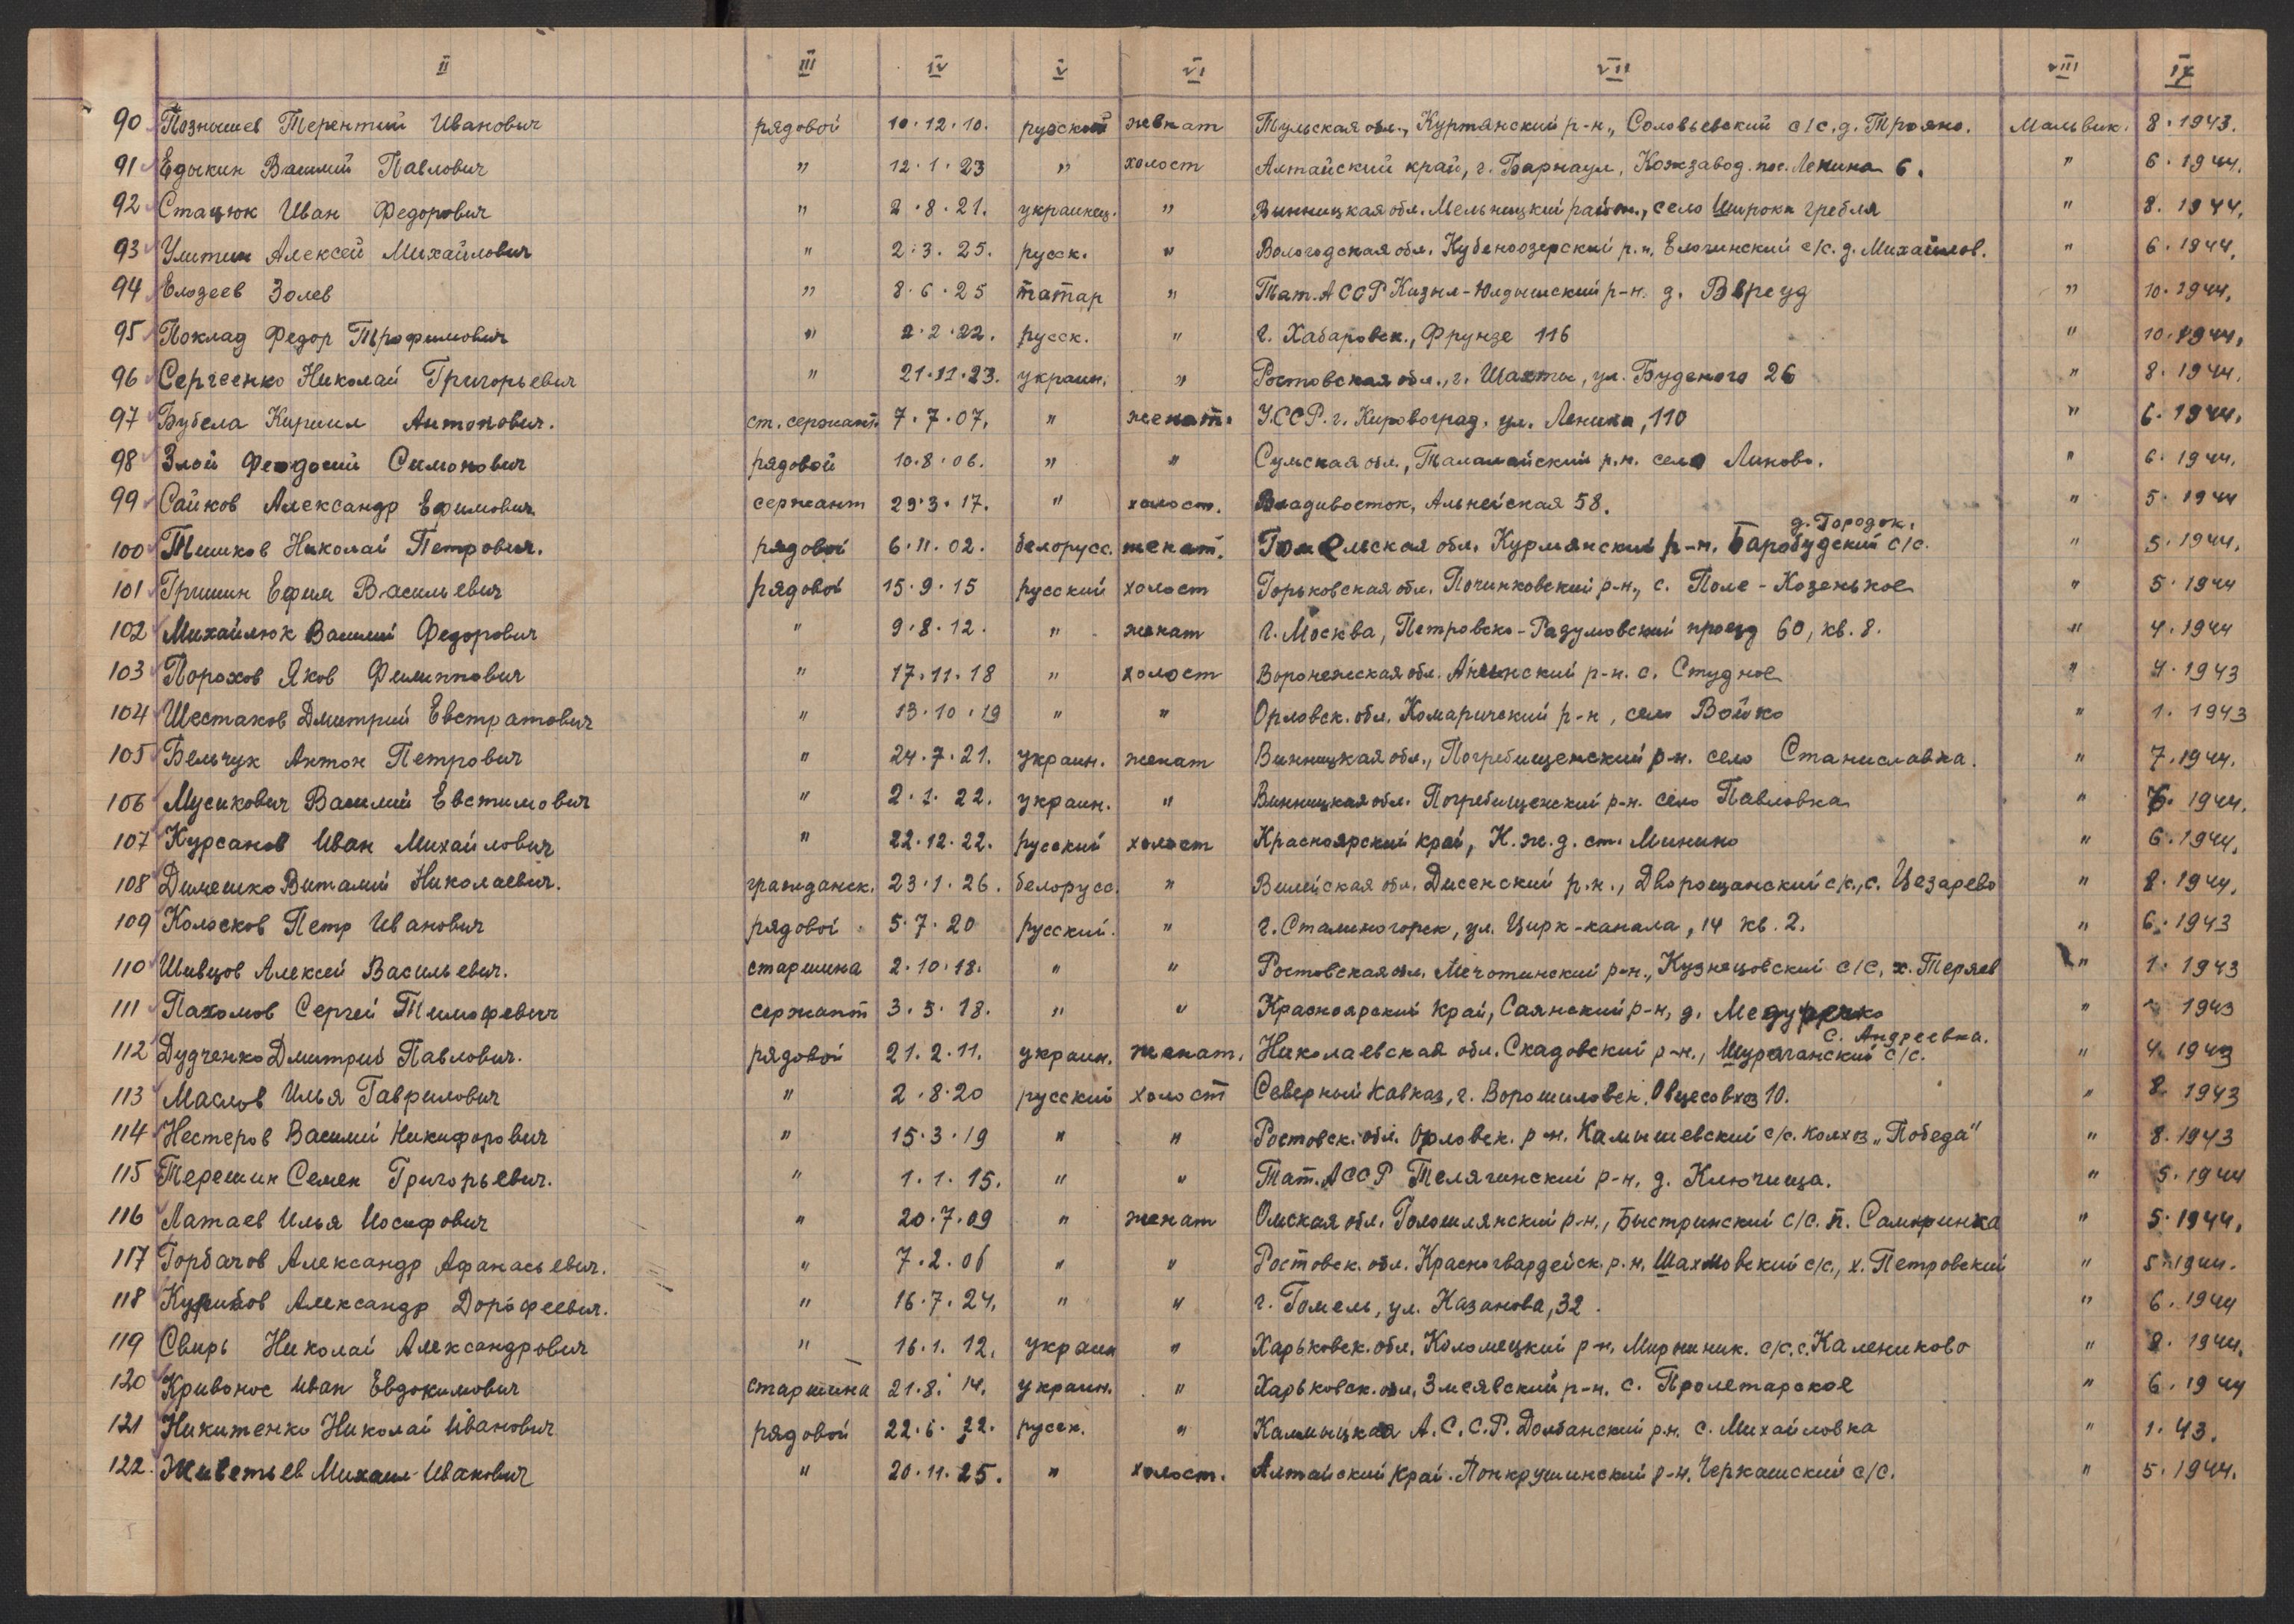 II III IV V VI VII VIII IX
90 Познышев Терентий Иванович рядовой 10.12.10. русский женат Тульская обл., Куртанский р-н., Соловьевский с/с. д. Трояно. Мальвик. 8.1943.
91 Едыкин Василий Павлович " 12.1.23 " холост Алтайский край, г. Барнаул, Кожзавод. пос. Ленина 6. " 6.1944.
92 Стацюк Иван Федорович " 2.8.21. украинец. " Винницкая обл. Мельницкий район., село Широка гребля " 8.1944.
93 Улитин Алексей Михайлович " 2.3.25. русск. " Вологодская обл. Кубеноозерский р.н. Елогинский с/с. д. Михайлов. " 6.1944.
94 Елозеев Золев " 8.6.25 татар " Тат. АССР Кизыл-Юлдышский р-н. д. " 10.1944.
95 Поклад Федор Трофимович " 2.2.22. русск. " г. Хабаровск., Фрунзе 116 " 10.1944.
96 Сергеенко Николай Григорьевич " 21.11.23. украин. " Ростовская обл., г. Шахты, ул. Буденого 26 " 8.1944.
97 Бубела Кирилл Антонович. ст. сержант. 7.7.07. " женат. УССР. г. Кировоград. ул. Ленина, 110 " 6.1944.
98 Злой Феодосий Симонович рядовой 10.8.06. " " Сумская обл., Талалайский р.н. село Липово. " 6.1944.
99 Сайков Александр Ефимович сержант 29.3.17. " холост. Владивосток, Альнейская 58. " 5.1944
д. Городок.
100 Тишков Николай Петрович. рядовой 6.11.02. белорусс. женат. Гомельская обл. Курмянский р-н. Баробудский с/с. " 5.1944.
101 Гришин Ефим Васильевич рядовой 15.9.15 русский холост Горьковская обл. Починковский р-н., с. Поле-Козенькое " 5.1944
102 Михайлюк Василий Федорович " 9.8.12. " женат г. Москва, Петровско-Разумовский проезд 60, кв. 8. " 4.1944
103 Порохов Яков Филиппович " 17.11.18 " холост Воронежская обл. Аннинский р-н. с. Студное " 4.1943
104 Шестаков Дмитрий Евстратович " 13.10.19 " " Орловск. обл. Комаричский р-н, село Войко " 1.1943
105 Бельчук Антон Петрович " 24.7.21. украин. женат Винницкая обл., Погребищенский р-н. село Станиславка. " 7.1944.
106 Мусикович Василий Евстимович " 2.1.22. украин. " Винницкая обл. Погребищенский р-н. село Павловка " 6.1944.
107 Курсанов Иван Михайлович " 22.12.22. русский холост Красноярский край, К.ж.д. ст. Минино " 6.1944.
108 Димешко Виталий Николаевич. гражданск. 23.1.26. белорусс. " Вилейская обл. Дисенский р.н., Дворощанский с/с., с. Цезарево " 8.1944.
109 Колосков Петр Иванович рядовой 5.7.20 русский. " г. Сталиногорск, ул. Цирк-канала, 14 кв. 2. " 6.1943
110 Шивцов Алексей Васильевич. старшина 2.10.18. " " Ростовская обл. Мечотинский р-н., Кузнецовский с/с, х. Теряев " 1.1943
111 Пахомов Сергей Тимофевич сержант 3.5.18. " " Красноярский край, Саянский р-н, д. " 1943
с. Андреевка.
112 Дудченко Дмитрий Павлович. рядовой 21.2.11. украин. женат. Николаевская обл. Скадовский р-н., Шураганский с/с. " 4.1943
113 Маслов Илья Гаврилович " 2.8.20 русский холост Северный Кавказ, г. Ворошиловск. Овцесовхоз 10. " 8.1943
114 Нестеров Василий Никифорович " 15.3.19 " " Ростовск. обл. Орловск. р-н. Камышевский с/с. колхоз „Победа" " 8.1943
115 Терешин Семен Григорьевич. " 1.1.15. " " Тат. АССР Телягинский р-н. д. Ключища. " 5.1944
116 Латаев Илья Иосифович " 20.7.09 " женат Омская обл. Голошлянский р-н., Быстринский с/с. п. Самаринка " 5.1944.
117 Горбачов Александр Афанасьевич. " 7.2.06 " " Ростовск. обл. Красногвардейск. р.н. Шахмовский с/с., х. Петровский " 5.1944.
118 Александр Дорофеевич. " 16.7.24. " " г. Гомель, ул. Казанова, 32. " 6.1944
119 Свирь Николай Александрович " 16.1.12. украин " Харьковск. обл. Коломецкий р-н. Мирошник. с/с. с. Калениково " 8.1944.
120 Кривонос Иван Евдокимович старшина 21.8.14. украин. " Харьковск. обл. Змеявский р-н. с. Пролетарское " 6.1944
121 Никитенко Николай Иванович рядовой 22.6.22. русск. " Калмыцкая А.С.С.Р. Долбанский р.н. с. Михайловка " 1.43.
122. Живетьев Михаил Иванович " 20.11.25. " холост. Алтайский край. Понкрушинский р-н. Черкашский с/с. " 5.1944.